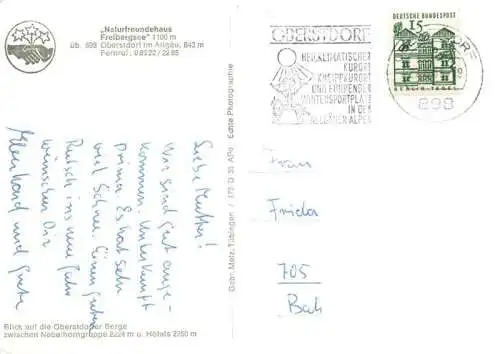 „Naturfreundehaus
Freibergsee" 1100 m
üb. 898 Oberstdorf im Allgäu, 843 m
Fernruf: 08322 / 22 85
Liebe Mutter!
Wir sind gut ange-
kommen. Unterkunft
prima. Es hat sehr
viel Schnee. Einen guten
Rutsch ins neue Jahr
wünschen Dir
und Grete
Blick auf die Oberstdorfer Berge
zwischen Nebelhorngruppe 2224 m u. Höfats 2260 m
Gebr. Metz, Tübingen / 173 D 31 APo Echte Photographie
OBERSTDORF
HEILKLIMATISCHER
KURORT
KNEIPPKURORT
UND FÜHRENDER
WINTERSPORTPLATZ
IN DEN
ALLGÄUER ALPEN
DEUTSCHE BUNDESPOST
15
BERLIN-TEGEL
898
Frau
Frida
705
Bach